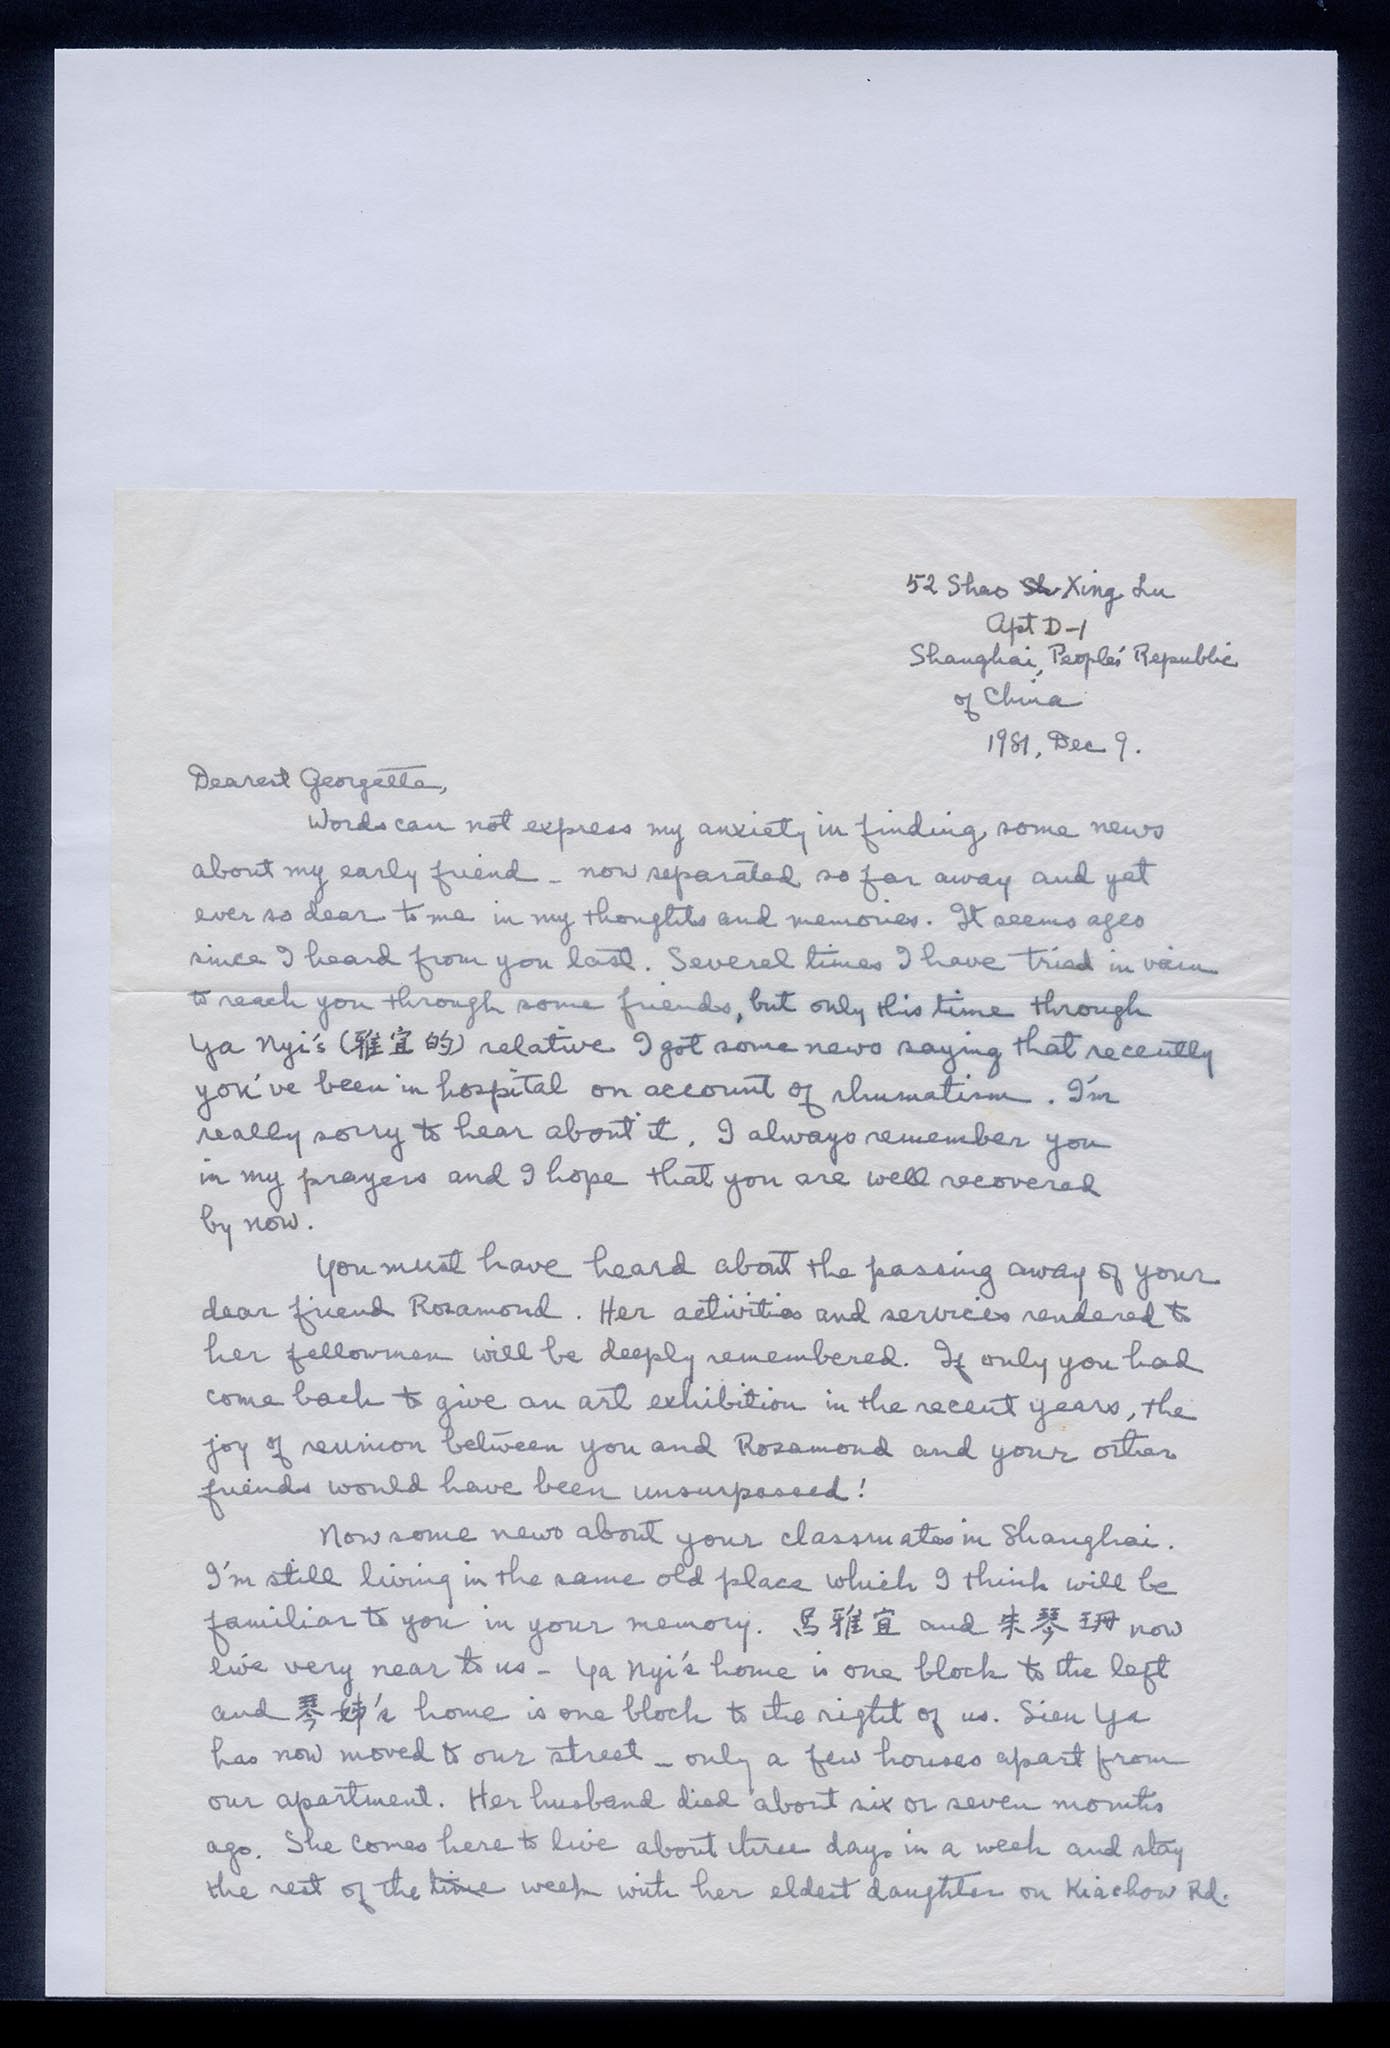 52 Shao Xing Lu
Apt D-1
Shanghai, People's Republic
of China
1981, Dec 9.
Dearest Georgette,
Words can not express my anxiety in finding some news
about my early friend - now separated so far away and yet
ever so dear to me in my thoughts and memories. It seems ages
since I heard from you last. Several times I have tried in vain
to reach you through some friends, but only this time through
Ya Nyi's (雅宜的) relative I got some news saying that recently
you've been in hospital on account of rhumatism. I'm
really sorry to hear about it. I always remember you
in my prayers and I hope that you are well recovered
by now.
You must have heard about the passing away of your
dear friend Rosamond. Her activities and services rendered to
her fellowmen will be deeply remembered. If only you had
come back to give an art exhibition in the recent years, the
joy of reunion between you and Rosamond and your other
friends would have been unsurpassed!
Now some news about your classmates in Shanghai.
I'm still living in the same old place which I think will be
familiar to you in your memory. 馬雅宜 and 朱琴珊 now
live very near to us - Ya Nyi's home is one block to the left
and 琴姊's home is one block to the right of us. Sien Ya
has now moved to our street - only a few houses apart from
our apartment. Her husband died about six or seven months
ago. She comes here to live about three days in a week and stay
the rest of the time week with her eldest daughter on Kiaochow Rd.